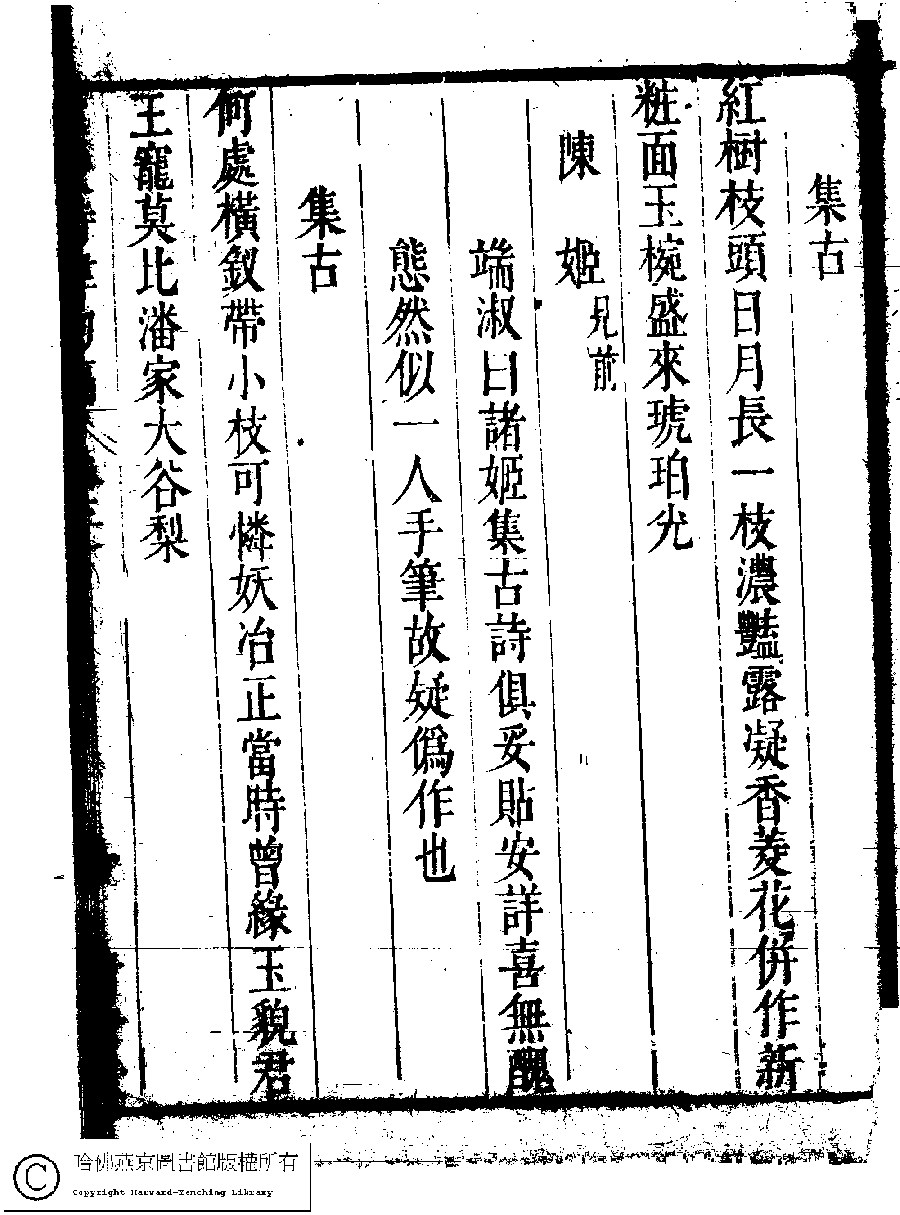 集古
紅樹枝頭日月長一枝濃豔露凝香菱花併作新
粧面玉椀盛來琥珀光
陳姬見前
端淑曰諸姬集古詩俱妥貼安詳喜無醜
態然似一人手筆故疑僞作也
集古
何處橫釵帶小枝可憐妖冶正當時曾緣玉貌君
王寵莫比潘家大谷梨
哈佛燕京圖書館版權所有
Copyright Harvard-Yenching Library